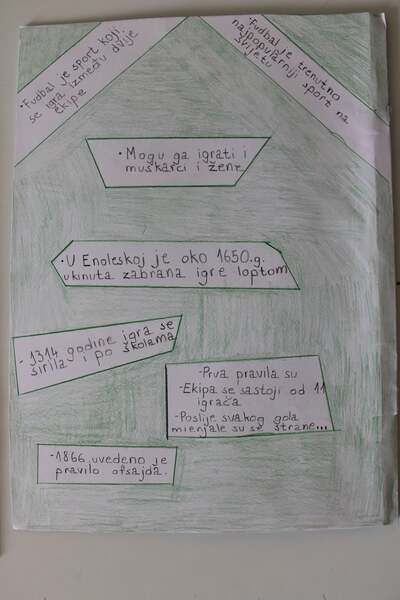 • Fudbal je sport koji
se igra između dvije
ekipe
• Fudbal je trenutno
najpopularniji sport na
svijetu
• Mogu ga igrati i
muškarci i žene
• U Engleskoj je oko 1650.g.
ukinuta zabrana igre loptom
• 1314 godine igra se
širila i po školama
- Prva pravila su
- Ekipa se sastoji od 11
igrača
- Poslije svakog gola
mienjale su se strane...
• 1866. uvedeno je
pravilo ofsajda.